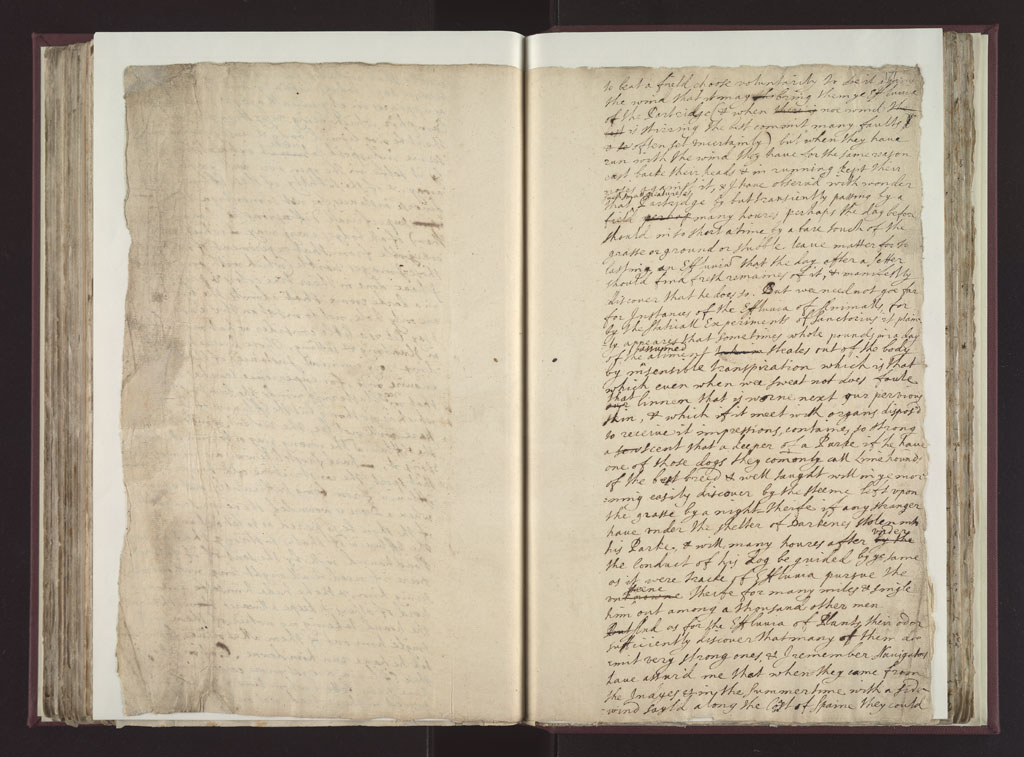 to beat a field, choose voluntarily to doe it
the wind that it may bring them ye Effluvia
of the Partridge (& when there is noe wind
is stirring the best commit many faults &
often set uncertainly) but when they have
run with the wind they have for the same reason
cast backe their heads & in running kept their
noses against it, & I have observd with wonder
that Partridge by but transiently passing by a
field many houres perhaps the day before
should in so short a time by a bare touch of the
grasse or ground or stubble leave matter for so
lasting an Effluvium that the day after a setter
should find fresh remaines of it, & manifestly
discover that he does so. But we need not goe far
for Instances of the Effluvia of Animalls, for
by the Statical Experiments of Sanctorius it plain
ly appeares that sometimes whole pounds in a day
of the aliment assumed steales out of the body
by insensible transpiration which is that
which even when wee sweat not does foule
that linnen that is worne next our pervious
skin, & which if it meet with organs dispos'd
to receive its impressions, containes so strong
a scent that a keeper of a Parke if he have
one of those dogs they comonly call Lime hounds
of the best breed & well taught will in ye mor
:ning easily discover by the steeme left upon
the grasse by a night-theife if any stranger
have under the shelter of Darkenes stolen into
his Parke, & will many houres after under
the conduct of his Dog be guided by ye same
as it were track of Effluvia pursue the
theife for many miles & single
him out among a thousand other men
And as for the Effluvia of Plants, their odor
sufficiently discover that many of them do
emit very strong ones, & I remember Navigators
have assur'd me that when they came from
the Indyes & in the Summer time with a side
wind sayld along the Cost of Spaine they could